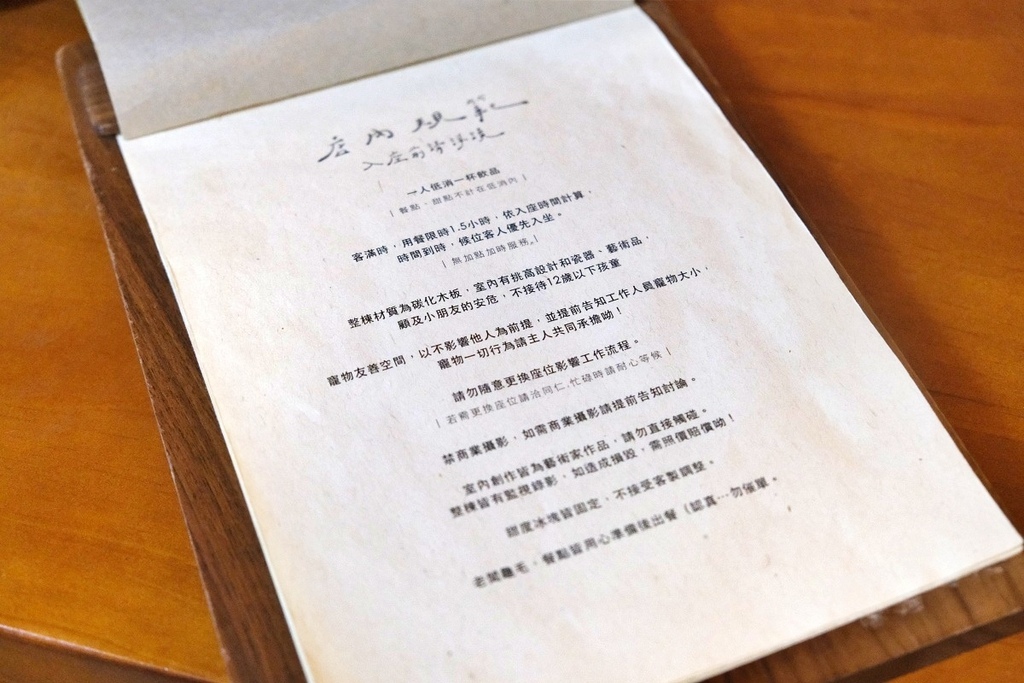 店內規範
入座前請詳讀
一人低消一杯飲品
| 餐點、甜點不計在低消內 |
客滿時,用餐限時1.5小時,依入座時間計算,
時間到時,候位客人優先入坐。
| 無加點加時服務。|
整棟材質為碳化木板,室內有挑高設計和瓷器、藝術品,
顧及小朋友的安危,不接待12歲以下孩童
寵物友善空間,以不影響他人為前提,並提前告知工作人員寵物大小,
寵物一切行為請主人共同承擔呦!
請勿隨意更換座位影響工作流程。
| 若需更換座位請洽同仁,忙碌時請耐心等候 |
禁商業攝影,如需商業攝影請提前告知討論。
室內創作皆為藝術家作品,請勿直接觸碰。
整棟皆有監視錄影,如造成損毀,需照價賠償呦!
甜度冰塊皆固定,不接受客製調整。
老闆龜毛,餐點皆用心準備後出餐(認真…勿催單。